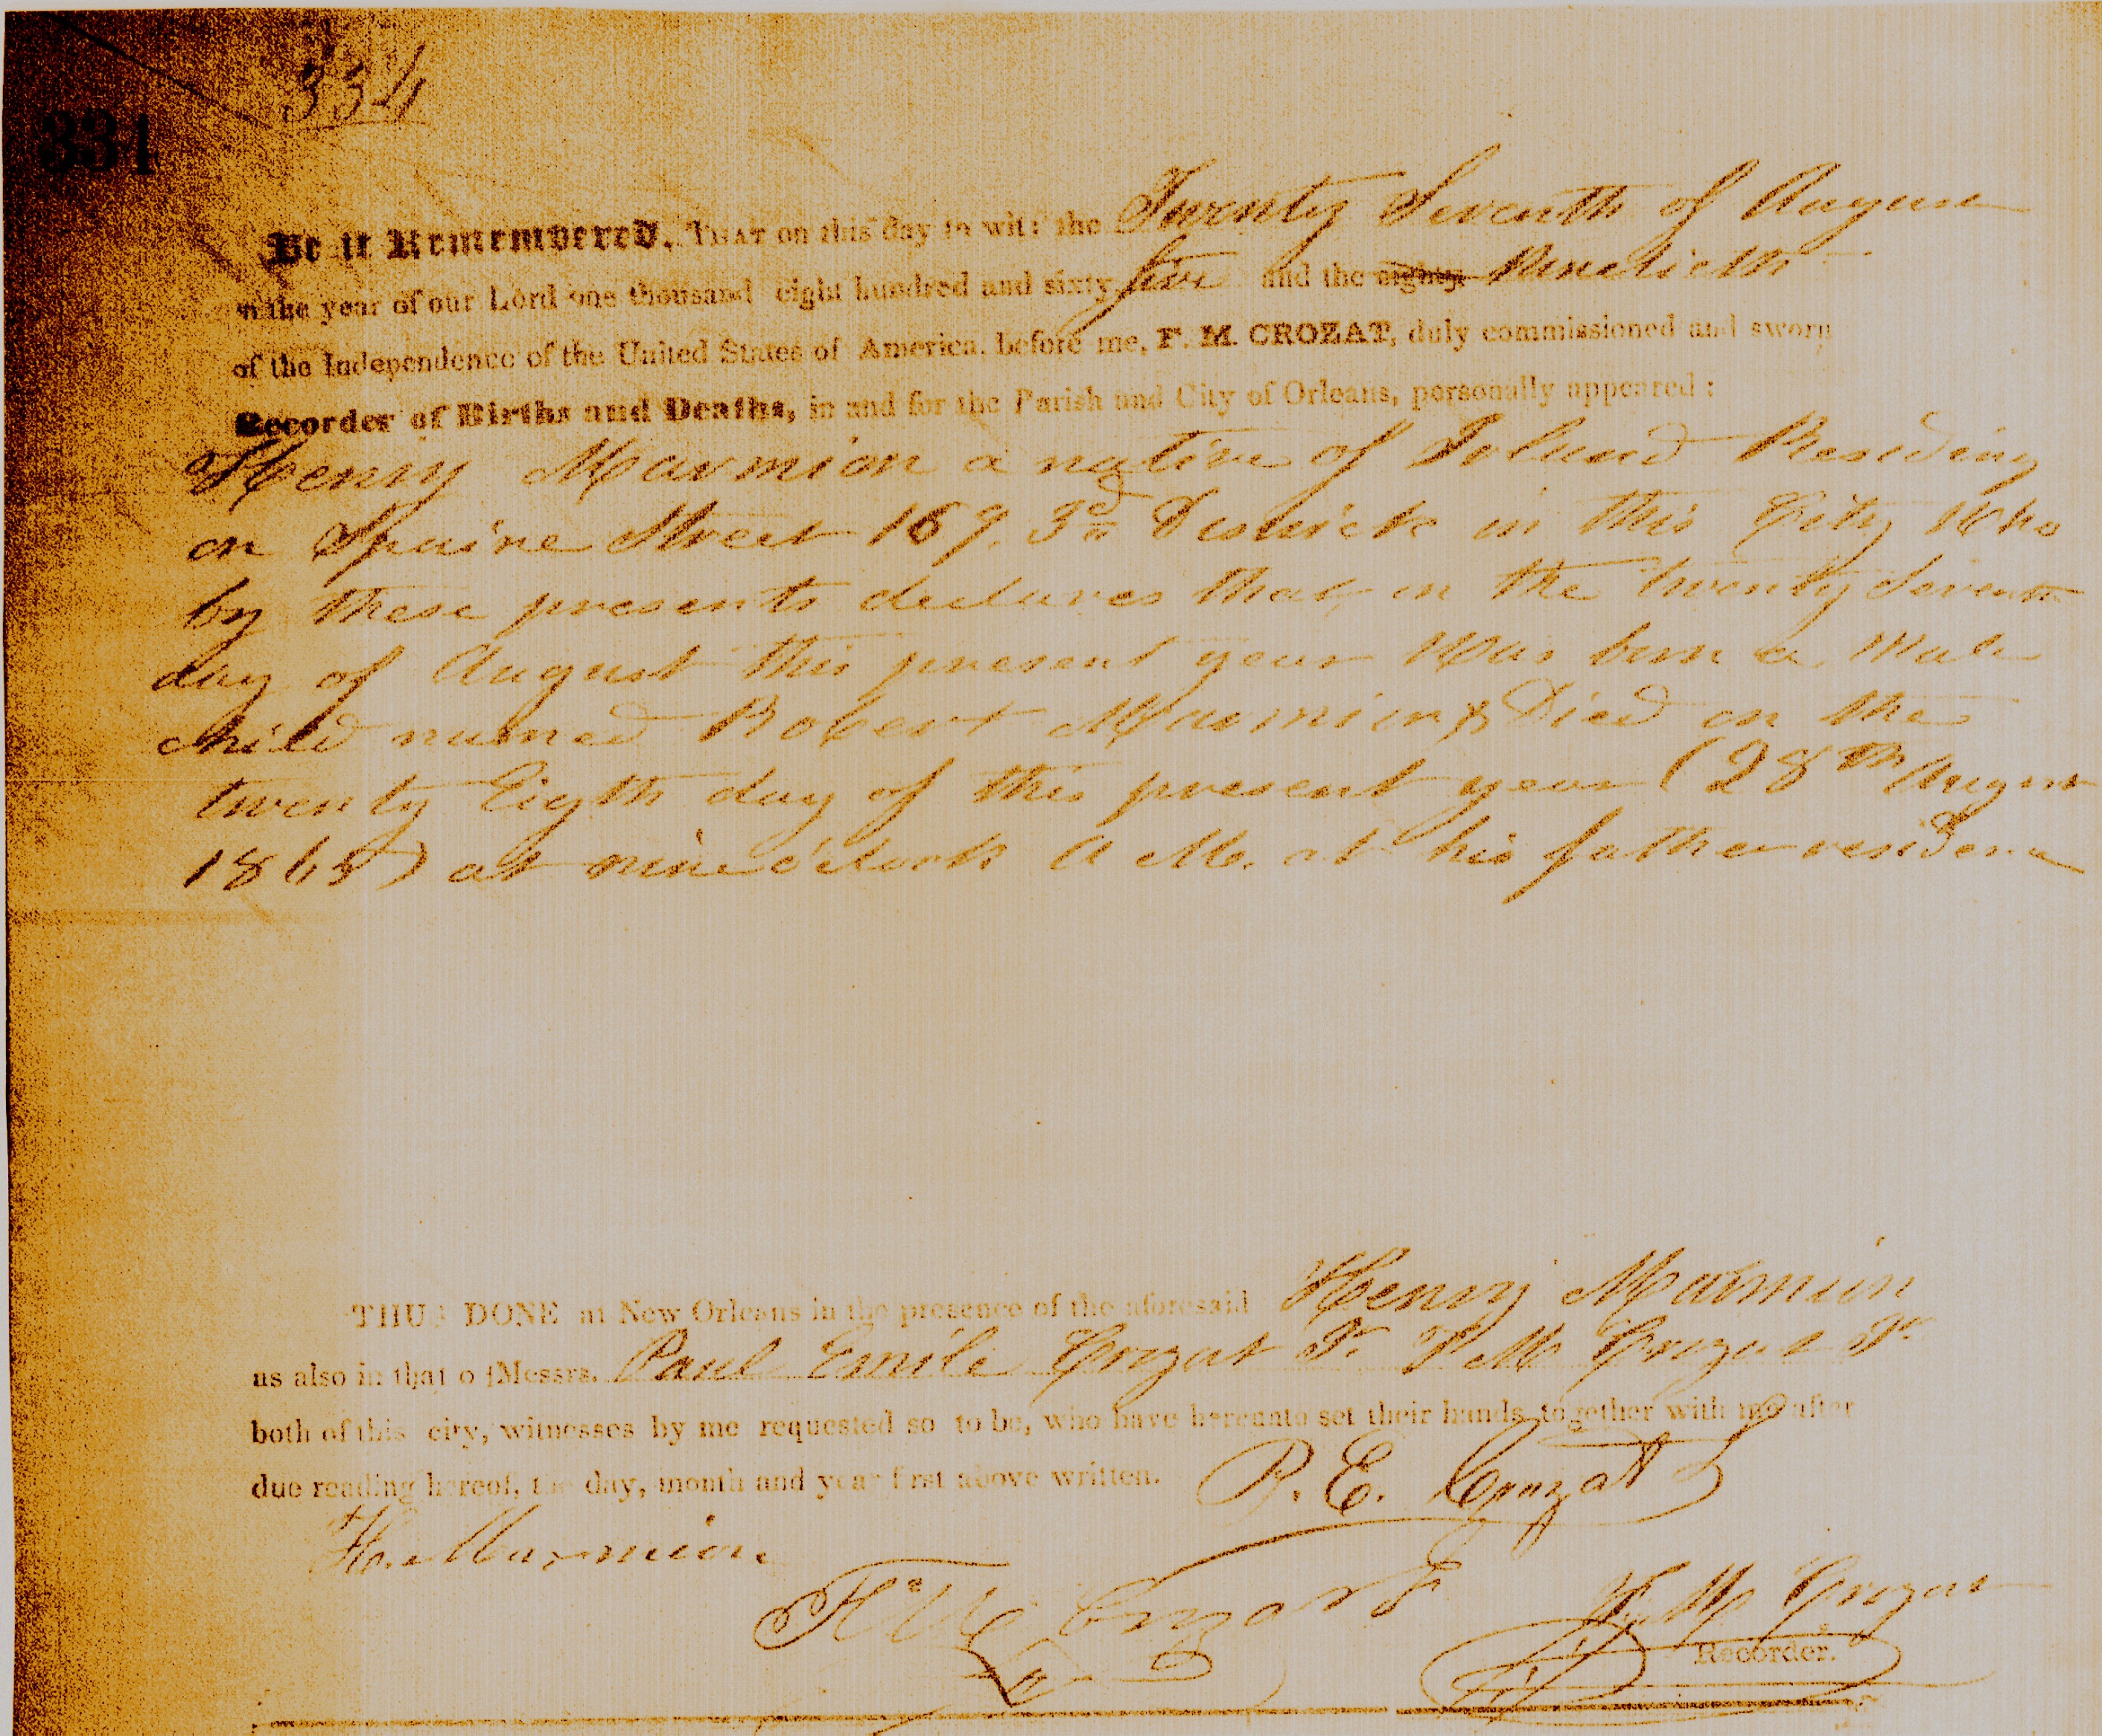 334
334
Be it Remembered, THAT on this day to wit: the Twenty Seventh of August
in the year of our Lord one thousand eight hundred and sixty five and the eighty Ninetieth
of the Independence of the United States of America, before me, F. M. CROZAT, duly commissioned and sworn
Recorder of Births and Deaths, in and for the Parish and City of Orleans, personally appeared:
Henry Marmion a native of Ireland Residing
on Spaine Street 169. 3d District in this City Who
by these presents declares that, on the twenty Seventh
day of August this present year Was born a Male
child named Robert Marmion & Died on the
twenty Eigth day of this present year (28th August
1865) at nine o'clock A M. at his father residence
THUS DONE at New Orleans in the presence of the aforesaid Henry Marmion
as also in that of Messrs. Paul Emile Crozat & F M Crozat Jr
both of this city, witnesses by me requested so to be, who have hereunto set their hands together with me after
due reading hereof, the day, month and year first above written. P. E. Crozat
H. Marmion
F M Crozat Jr F. M Crozat
Recorder.